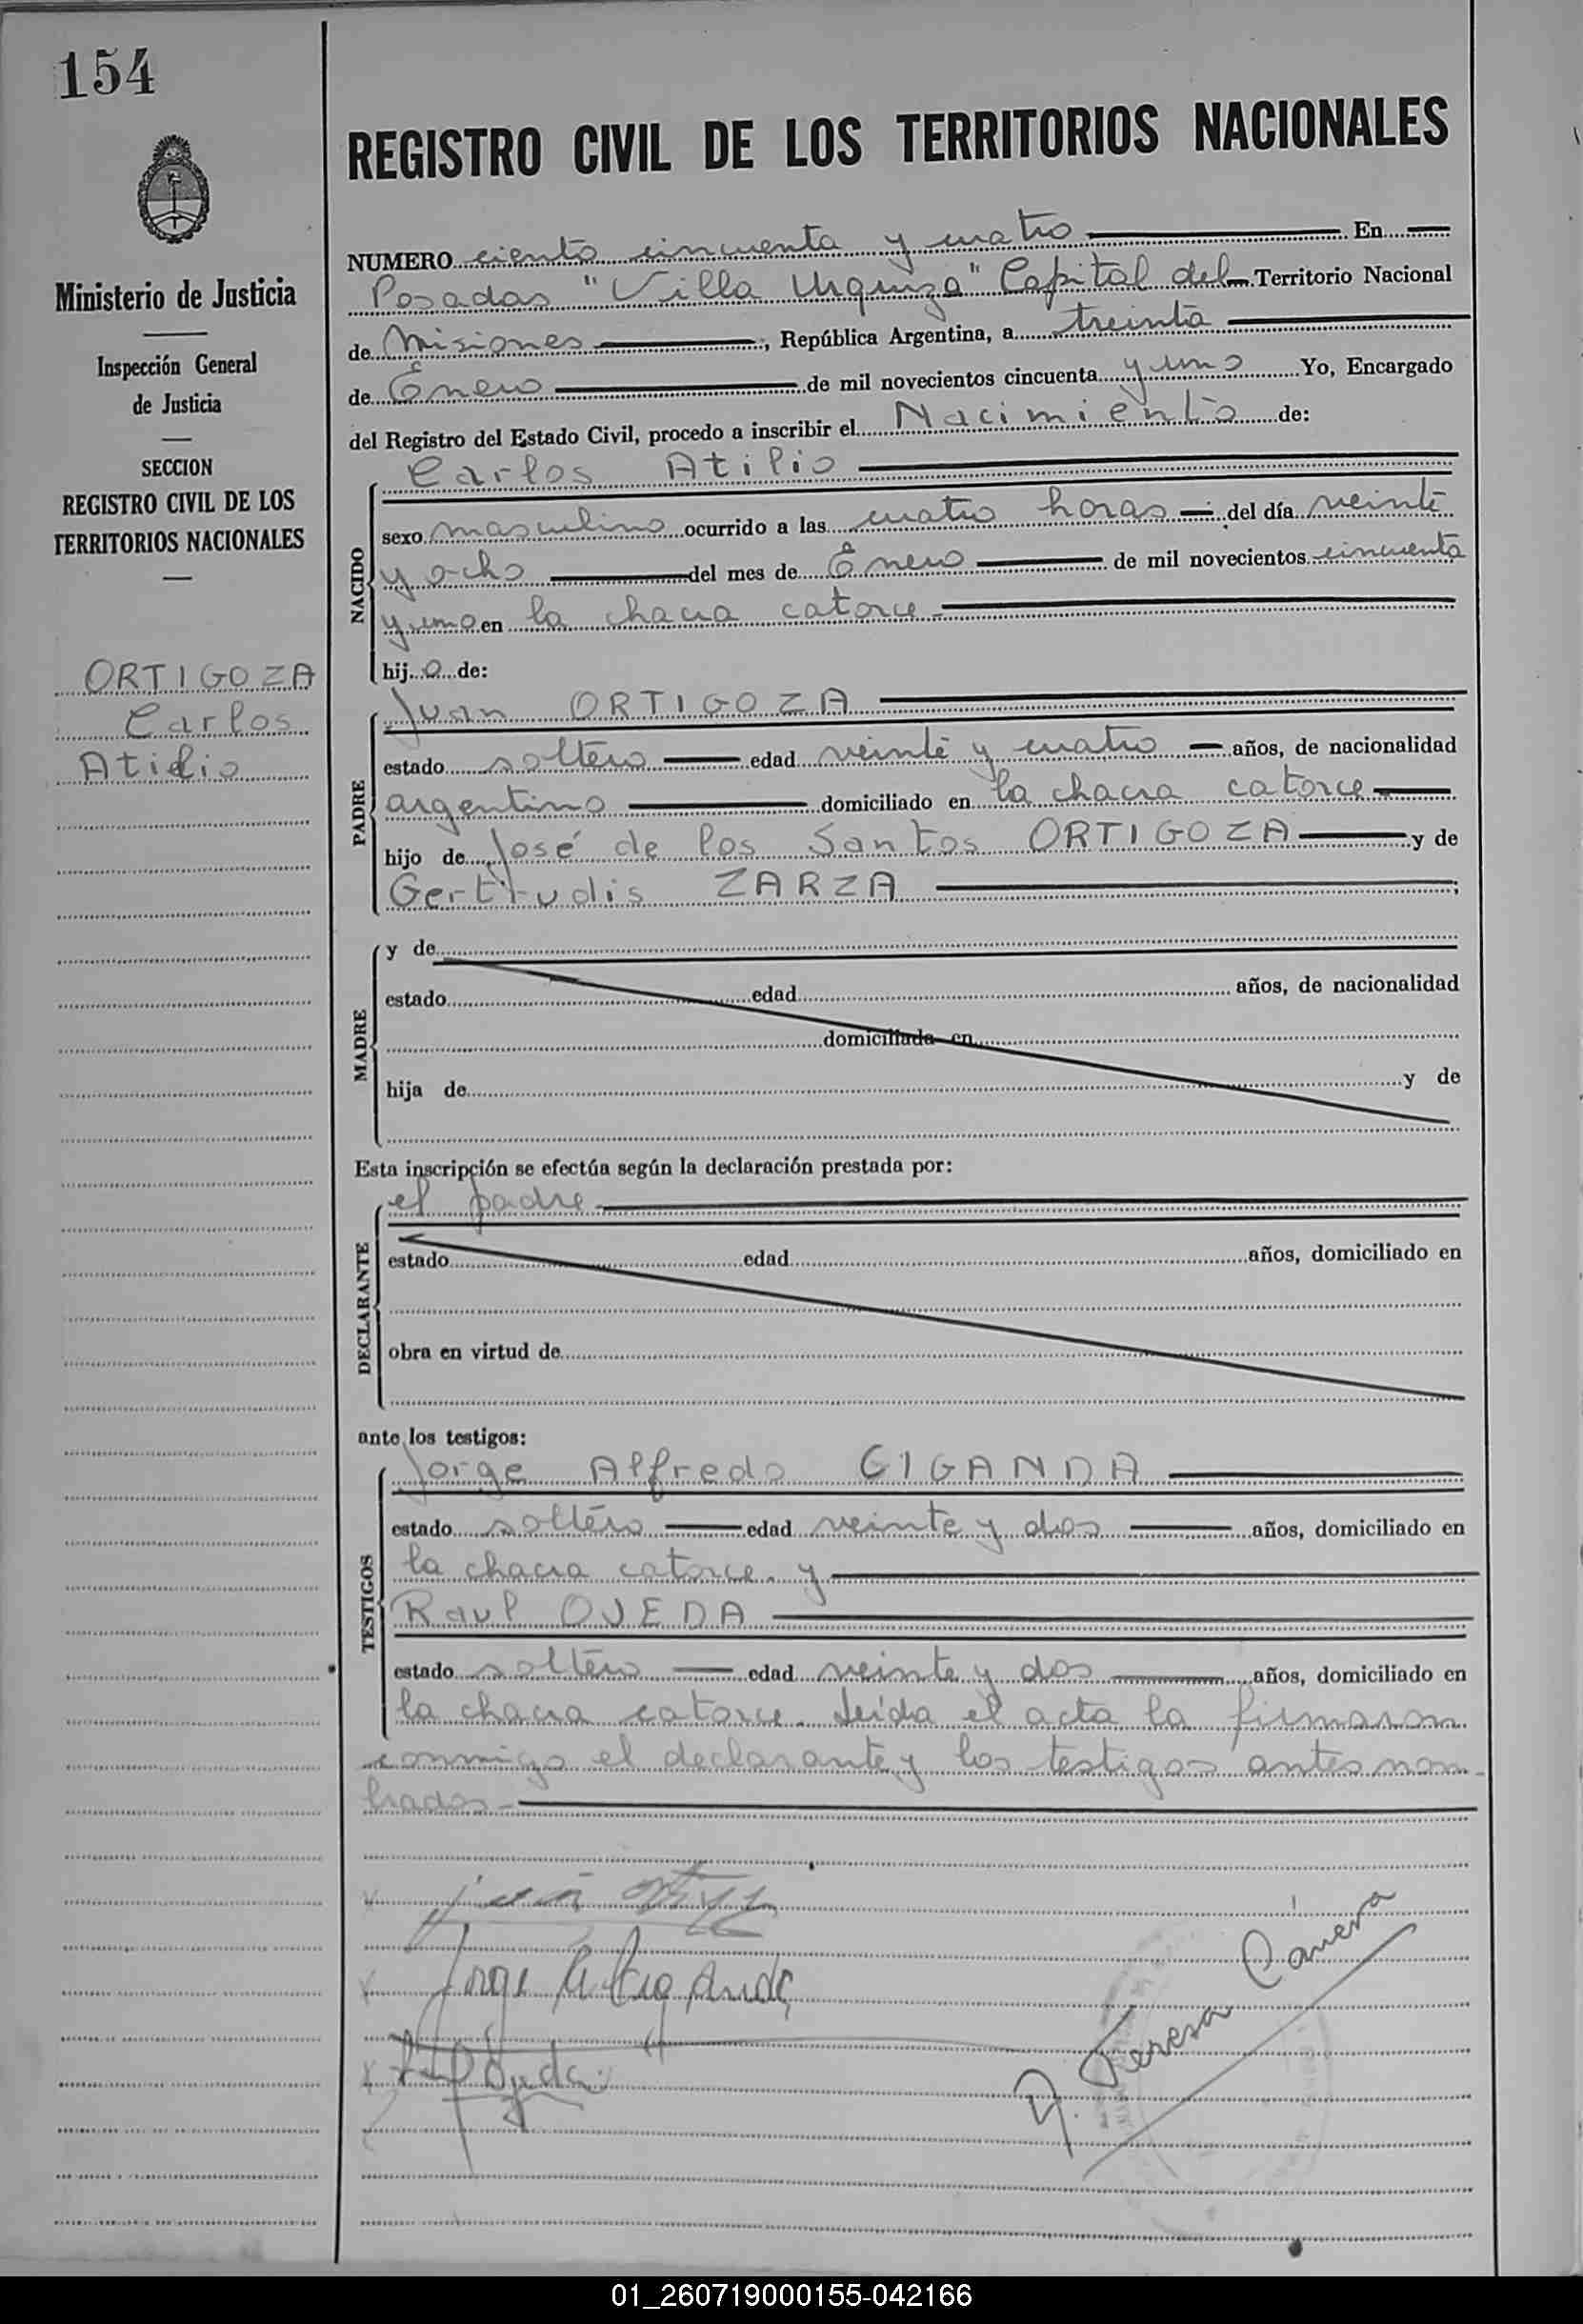 154
REGISTRO CIVIL DE LOS TERRITORIOS NACIONALES
Ministerio de Justicia
Inspección General
de Justicia
SECCION
REGISTRO CIVIL DE LOS
TERRITORIOS NACIONALES
ORTIGOZA
Carlos
Atilio
NUMERO ciento cincuenta y cuatro En
Posadas "Villa Urquiza" Capital del Territorio Nacional
de Misiones, República Argentina, a treinta
de Enero de mil novecientos cincuenta y uno Yo, Encargado
del Registro del Estado Civil, procedo a inscribir el Nacimiento de:
NACIDO
Carlos Atilio
sexo masculino ocurrido a las cuatro horas del día veinte
y ocho del mes de Enero de mil novecientos cincuenta
y uno en la chacra catorce
hijo de:
PADRE
Juan ORTIGOZA
estado soltero edad veinte y cuatro años, de nacionalidad
argentino domiciliado en la chacra catorce
hijo de José de los Santos ORTIGOZA y de
Gertrudis ZARZA;
MADRE
y de
estado edad años, de nacionalidad
domiciliada en
hija de y de
Esta inscripción se efectúa según la declaración prestada por:
DECLARANTE
el padre
estado edad años, domiciliado en
obra en virtud de
ante los testigos:
TESTIGOS
Jorge Alfredo CIGANDA
estado soltero edad veinte y dos años, domiciliado en
la chacra catorce. y
Raul OJEDA
estado soltero edad veinte y dos años, domiciliado en
la chacra catorce. Leída el acta la firmaron
conmigo el declarante y los testigos antes nom-
brados-
Jorge
Ojeda
Teresa
01_260719000155-042166